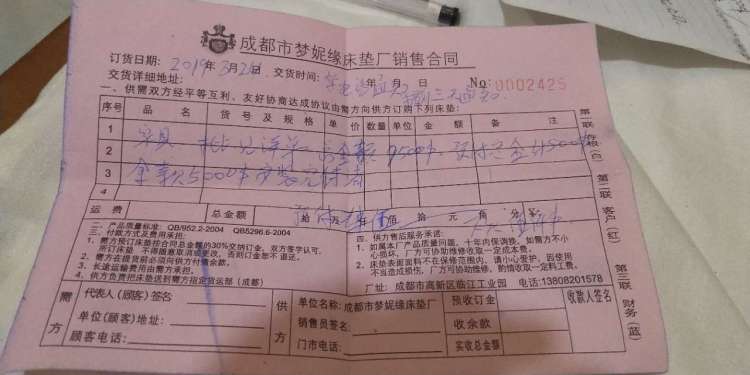 成都市梦妮缘床垫厂销售合同
订货日期：2019年3月2 日 交货时间： 年 月 日 No:0002425
交货详细地址：
一、供需双方经平等互利、友好协商达成协议由需方向供方订购下列床垫：
序号 品名 货号及规格 单价 数量 单位 金额 备注
1 家具
2
3 余款 5000
4
运费 总金额 拾 万 仟 佰 拾 元 角 分
二、产品质量标准：QB/952.2-2004 QB5296.6-2004
三、付款方式及费用承担：
1、需方预订床垫按合同总金额的30%交纳订金，双方签字认可，
所订床垫 不得随意取消或更改，否则订金恕不退还。
2、需方在提货前必需向供方付清余款。
3、长途运输费用由需方承担。
4、供方负责把床垫送到需方指定货运部（成都）
四、供方售后服务承诺：
1、如属本厂产品质量问题，十年内保调换。如需方不小
心损坏，厂方可协助维修收取一定成本费。
2、床垫表面面料不在保修范围内，请小心爱护，因使用
不当造成损伤，厂方可协助维修，酌情收取一定料工费。
厂址：成都市高新区临江工业园 电话:13808201578
需方 代表人（顾客）签名
单位(顾客)地址：
顾客电话：
供方 单位名称：成都市梦妮缘床垫厂
销售员签名：
门市电话：
预收订金
收余款
实收总金额
收款人签名
第一联 存根(白) 第二联 客户(红) 第三联 财务(蓝)